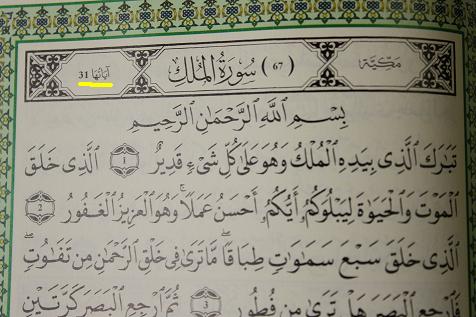 مكية (67) سُورَةُ المُلْكِ آيَاتُهَا 31
بِسْمِ اللَّهِ الرَّحْمَٰنِ الرَّحِيمِ
تَبَٰرَكَ الَّذِي بِيَدِهِ الْمُلْكُ وَهُوَ عَلَىٰ كُلِّ شَيْءٍ قَدِيرٌ 1 الَّذِي خَلَقَ
الْمَوْتَ وَالْحَيَوٰةَ لِيَبْلُوَكُمْ أَيُّكُمْ أَحْسَنُ عَمَلًا وَهُوَ الْعَزِيزُ الْغَفُورُ 2
الَّذِي خَلَقَ سَبْعَ سَمَٰوَٰتٍ طِبَاقًا مَّا تَرَىٰ فِي خَلْقِ الرَّحْمَٰنِ مِن تَفَٰوُتٍ
فَارْجِعِ الْبَصَرَ هَلْ تَرَىٰ مِن فُطُورٍ 3 ثُمَّ ارْجِعِ الْبَصَرَ كَرَّتَيْنِ